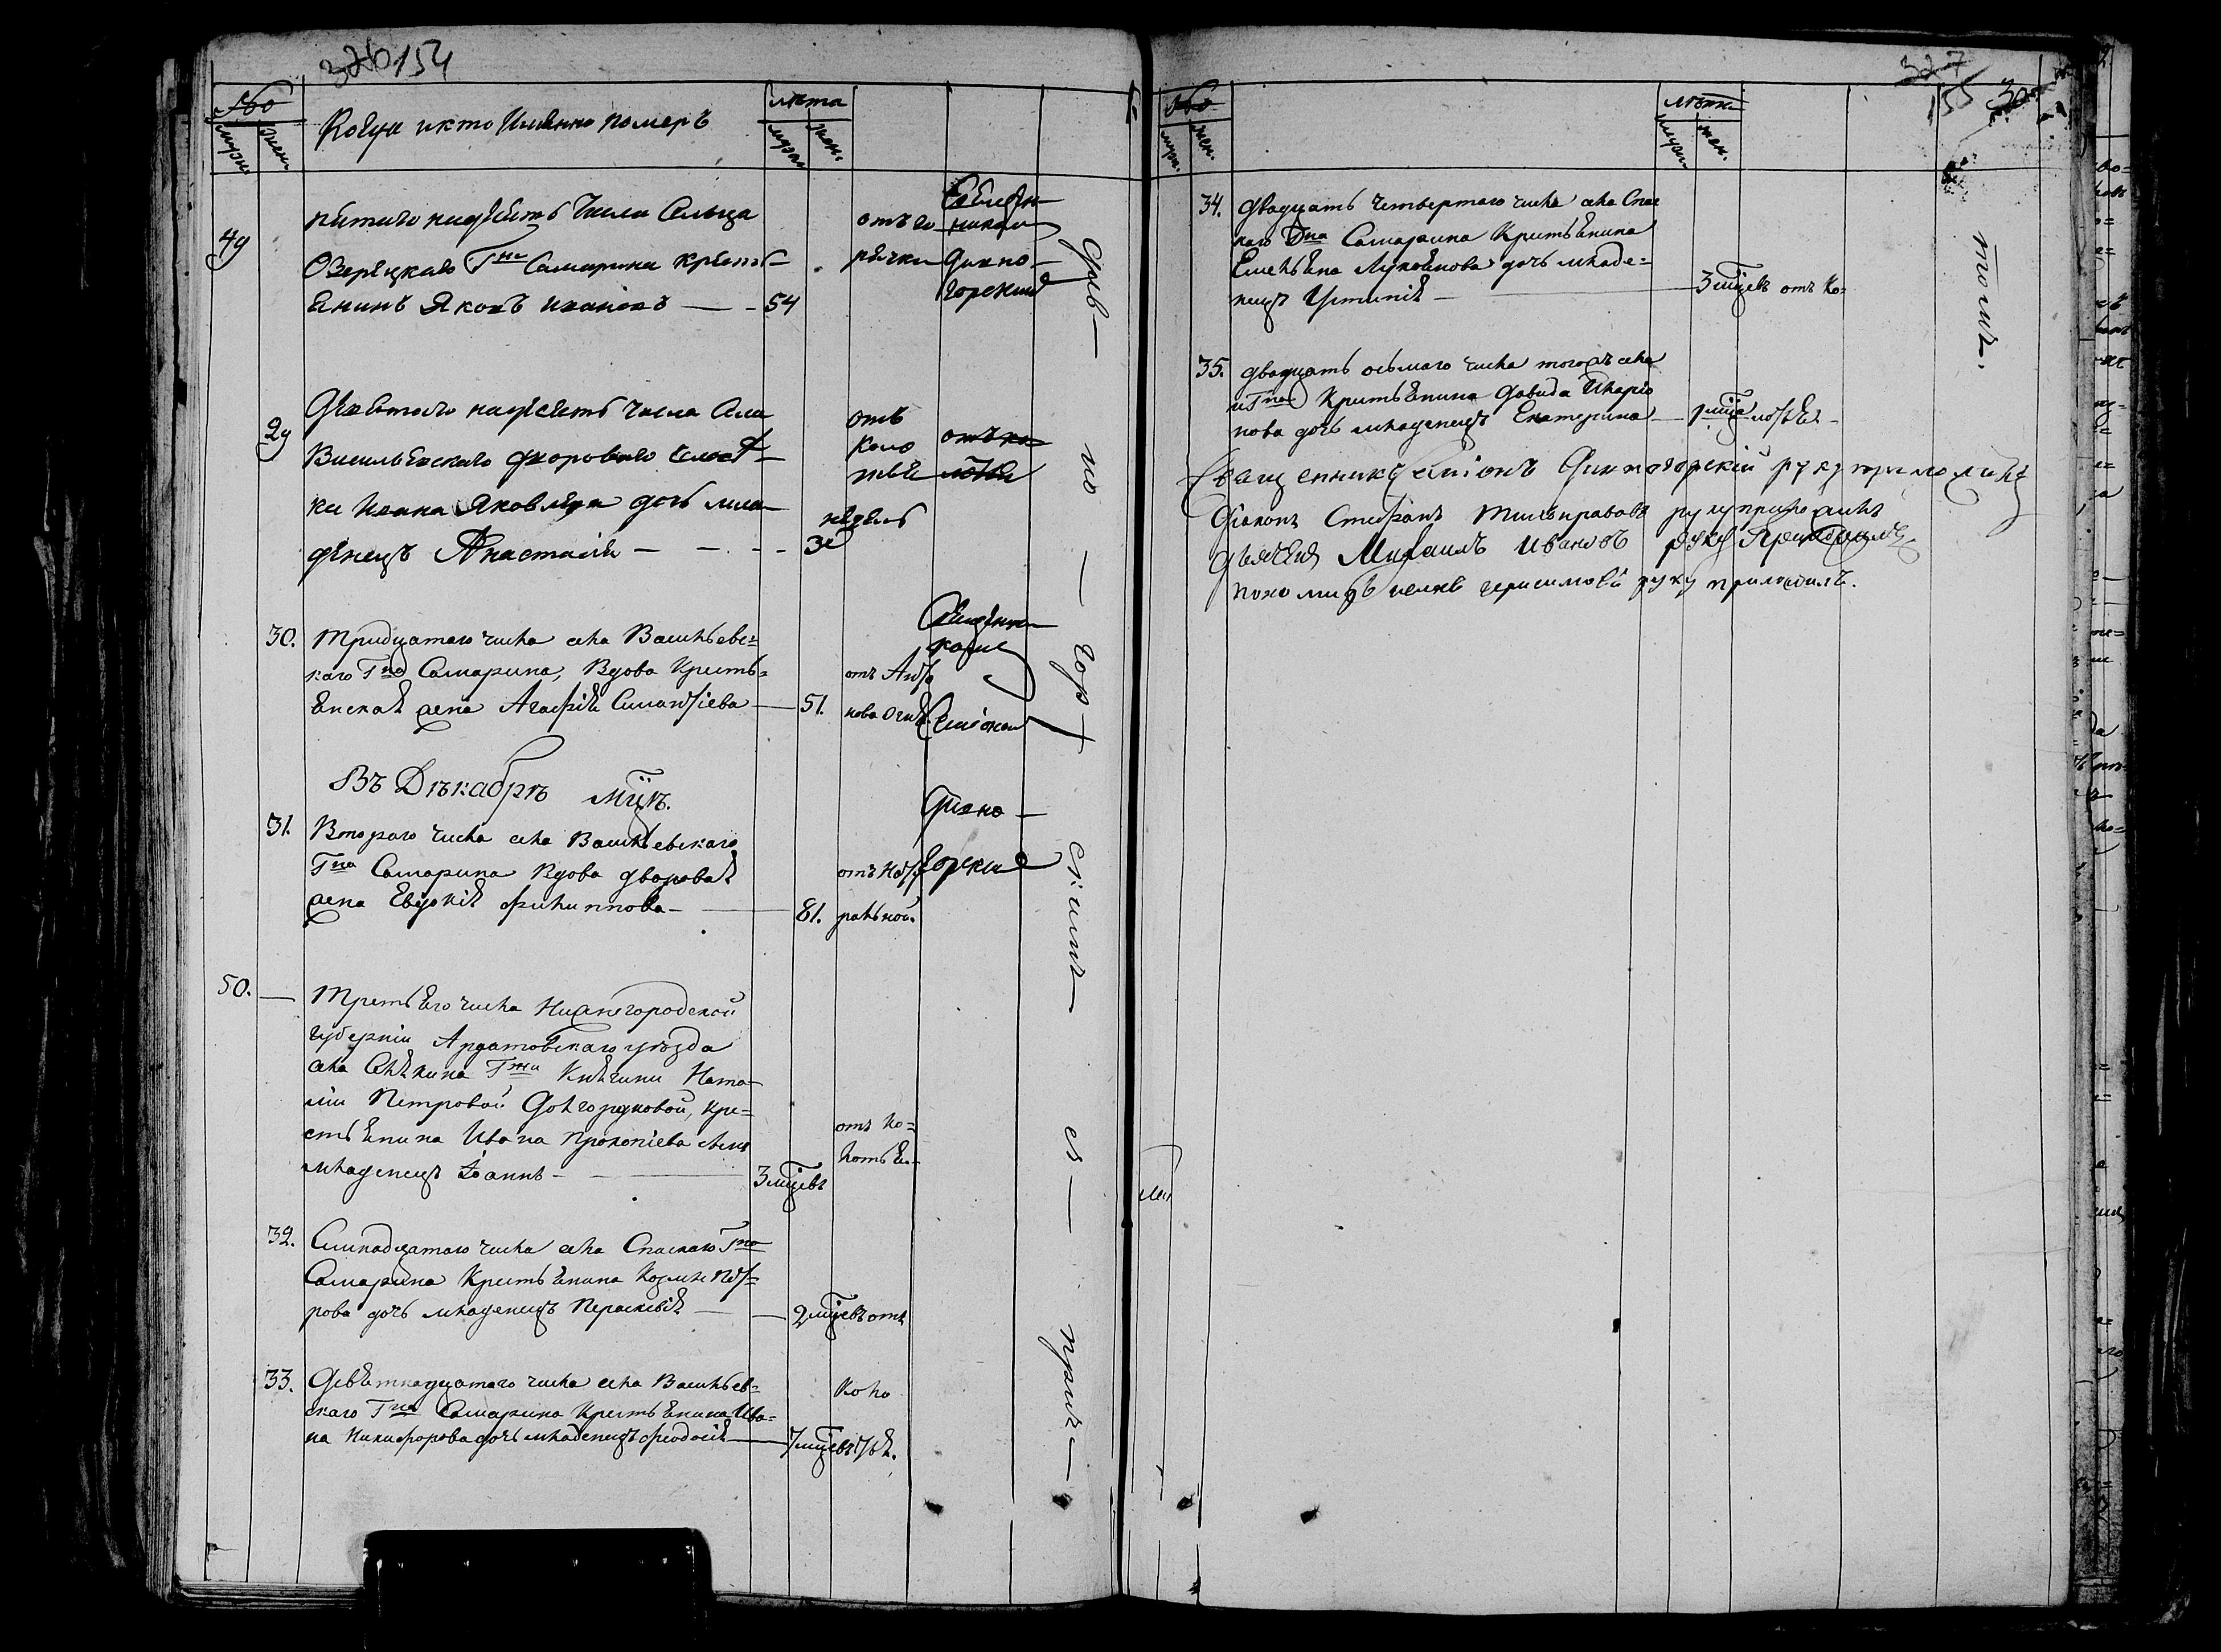 326 154
№
мужи
жен.
Когда и кто Именно померъ
лѣта
мужи
жен.
49
пятаго надесять Числа Сельца
Озерецкаго Гна Самарина крестья-
янинъ Яковъ Ивановъ — - 54
отъ го
рячки
Священ-
никомъ
Дивно-
горскимъ
29
Девятаго надесять Числа Села
Васильевскаго двороваго человѣ-
ка Ивана Яковлева дочь мла-
денецъ Анастасія — — - - 3
недель
отъ
коло
тья
30.
Тридцатаго числа села Васильевс=
каго Гна Самарина, Вдова Кресть=
янская жена Агафія — 51.
отъ Антo
нова огня
Священни-
комъ
Симеономъ
Въ Декабрѣ мцѣ.
31.
Втораго числа села Васильевскаго
Гна Самарина Вдова дворовая
жена Евдокія Филиппова — 81.
отъ нату
ральной.
Дивно-
горскимъ
50. —
Третьяго числа Нижегородской
губерніи Ардатовскаго уѣзда
села Гжи Княгини Ната-
ліи Петровой Долгоруковой, кре=
стьянина Ивана Прокопіева сынъ
младенецъ Іоаннъ - — 3 мцевъ
отъ ко=
лотья.
32.
Семнадцатаго числа села Спаскаго Гна
Самарина Крестьянина Козмы Пет=
рова дочь младенецъ Параскевія — 2 мцевъ отъ
33.
Девятнадцатаго числа села Васильев=
скаго Гна Самарина Крестьянина Ива=
на Никифорова дочь младенецъ Феодосія — 7 мцевъ тья.
коло
Див — но — гор — скимъ — въ — прих —
327
155
30
№
мужи.
жен.
лѣта
мужи
жен.
34.
двадцать четвертаго числа села Спас
каго Гна Самарина Крестьянина
Емельяна Лукоянова дочь младе=
нецъ Устинія — 3 мцевъ отъ ко=
35.
двадцать осьмаго числа тогожъ села
и Гна Крестьянина Давида Иларіо
нова дочь младенецъ Екатерина — 1 мца лотья -
томъ.
Священникъ Симіонъ Дивногорскій руку приложилъ
Діаконъ Стефанъ руку приложилъ
Дьячекъ Михаилъ Ивановъ руку Приложилъ
Пономарь Герасимовъ руку приложилъ.